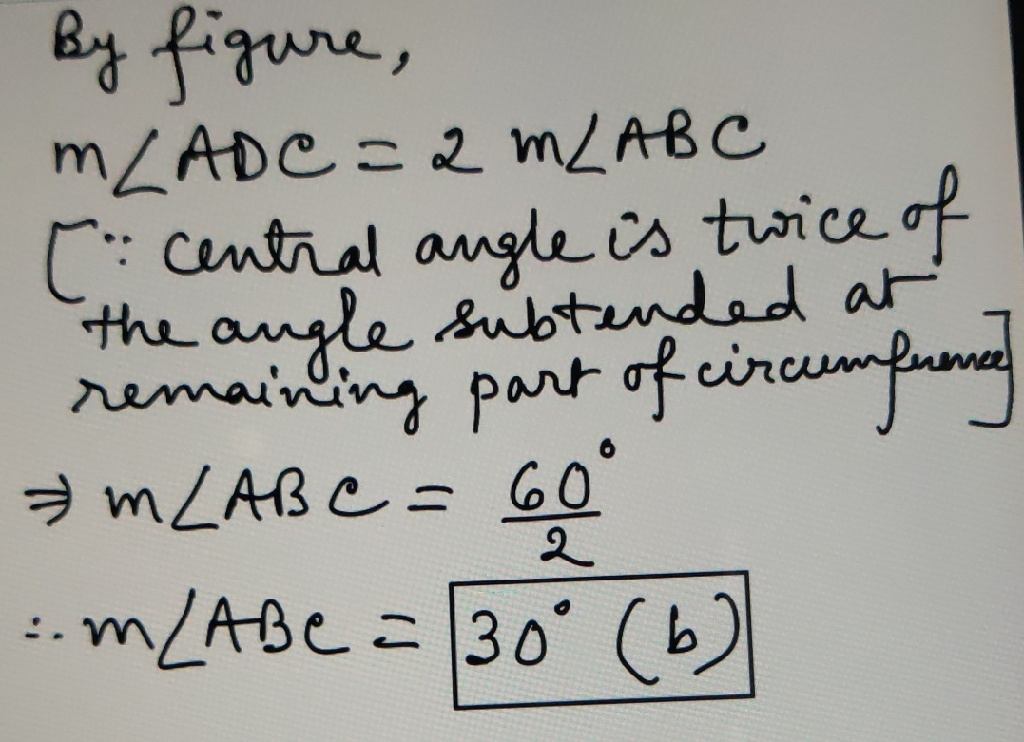 By figure,
m∠ADC = 2 m∠ABC
[∵ central angle is twice of
the angle subtended at
remaining part of circumference]
⇒ m∠ABC = 60°/2
∴ m∠ABC = 30° (b)